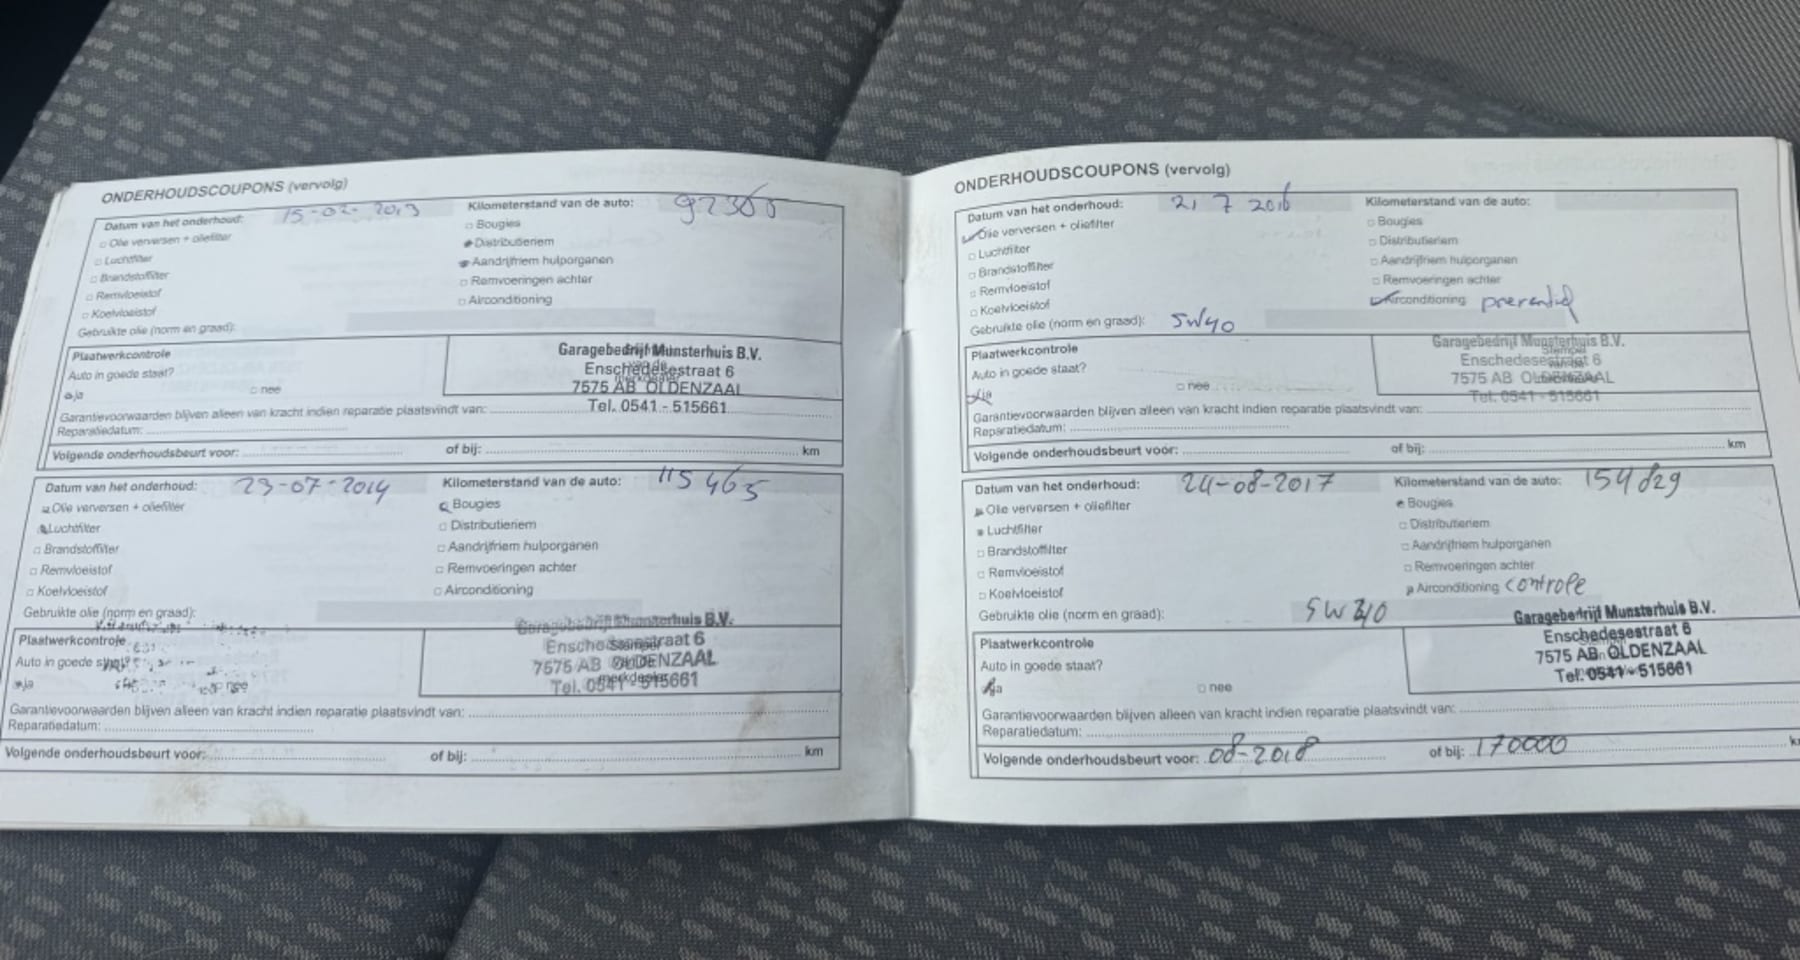 ONDERHOUDSCOUPONS (vervolg)
Datum van het onderhoud: 15-02-2013 Kilometerstand van de auto: 92360
Olie verversen + oliefilter Bougies
Luchtfilter Distributieriem
Brandstoffilter Aandrijfriem hulporganen
Remvloeistof Remvoeringen achter
Koelvloeistof Airconditioning
Gebruikte olie (norm en graad):
Plaatwerkcontrole
Auto in goede staat?
ja nee
Garagebedrijf Munsterhuis B.V.
Enschedesestraat 6
7575 AB OLDENZAAL
Tel. 0541 - 515661
Garantievoorwaarden blijven alleen van kracht indien reparatie plaatsvindt van:
Reparatiedatum:
Volgende onderhoudsbeurt voor: of bij: km
Datum van het onderhoud: 23-07-2014 Kilometerstand van de auto: 115465
Olie verversen + oliefilter Bougies
Luchtfilter Distributieriem
Brandstoffilter Aandrijfriem hulporganen
Remvloeistof Remvoeringen achter
Koelvloeistof Airconditioning
Gebruikte olie (norm en graad):
Plaatwerkcontrole
Auto in goede
ja nee
Garagebedrijf Munsterhuis B.V.
Enschedesestraat 6
7575 AB OLDENZAAL
Tel. 0541 - 515661
Garantievoorwaarden blijven alleen van kracht indien reparatie plaatsvindt van:
Reparatiedatum:
Volgende onderhoudsbeurt voor: of bij: km
ONDERHOUDSCOUPONS (vervolg)
Datum van het onderhoud: 21 7 2016 Kilometerstand van de auto:
Olie verversen + oliefilter Bougies
Luchtfilter Distributieriem
Brandstoffilter Aandrijfriem hulporganen
Remvloeistof Remvoeringen achter
Koelvloeistof Airconditioning preventief
Gebruikte olie (norm en graad): 5W40
Plaatwerkcontrole
Auto in goede staat?
ja nee
Garagebedrijf Munsterhuis B.V.
Enschedesestraat 6
7575 AB OLDENZAAL
Tel. 0541 - 515661
Garantievoorwaarden blijven alleen van kracht indien reparatie plaatsvindt van:
Reparatiedatum:
Volgende onderhoudsbeurt voor: of bij: km
Datum van het onderhoud: 24-08-2017 Kilometerstand van de auto: 154829
Olie verversen + oliefilter Bougies
Luchtfilter Distributieriem
Brandstoffilter Aandrijfriem hulporganen
Remvloeistof Remvoeringen achter
Koelvloeistof Airconditioning controle
Gebruikte olie (norm en graad):
Plaatwerkcontrole
Auto in goede staat?
ja nee
Garagebedrijf Munsterhuis B.V.
Enschedesestraat 6
7575 AB OLDENZAAL
Tel. 0541 - 515661
Garantievoorwaarden blijven alleen van kracht indien reparatie plaatsvindt van:
Reparatiedatum:
Volgende onderhoudsbeurt voor: 08-2018 of bij: 170000